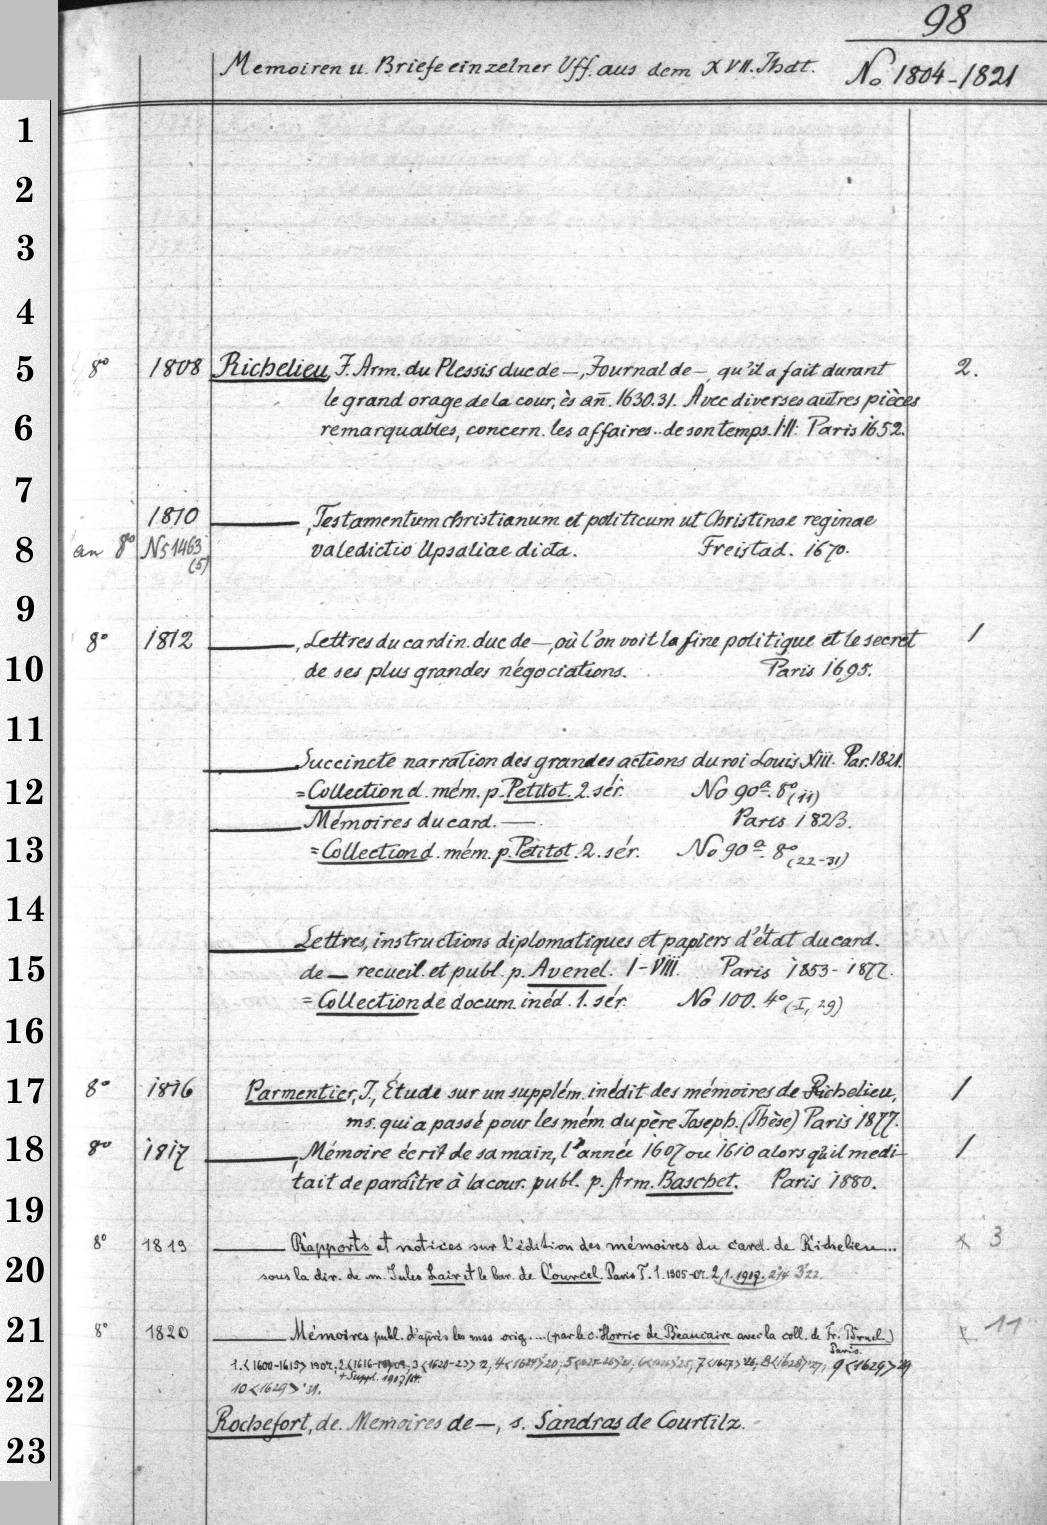 98
Memoiren u. Briefe einzelner Vff. aus dem XVII. Jhdt. No 1804-1821
1
2
3
4
5 8° 1808 Richelieu, J. Arm. du Plessis duc de —, Journal de —, qu'il a fait durant 2.
le grand orage de la cour, ès añ. 1630.31. Avec diverses autres pièces
6 remarquables, concern. les affaires .. de son temps. I-II. Paris 1652.
7
1810 ——, Testamentum christianum et politicum ut Christinae reginae
8 an 8° Ns 1463 (5) valedictio Upsaliae dicta. Freistad. 1670.
9
8° 1812 ——, Lettres du cardin. duc de —, où l'on voit la fine politique et le secret 1
10 de ses plus grandes négociations. Paris 1695.
11
—— Succincte narration des grandes actions du roi Louis XIII. Par. 1821.
12 = Collection d. mém. p. Petitot. 2. sér. No 90a. 8° (11)
—— Mémoires du card. —. Paris 1823.
13 = Collection d. mém. p. Petitot. 2. sér. No 90a. 8° (22-31)
14
—— Lettres, instructions diplomatiques et papiers d'état du card.
15 de — recueil. et publ. p. Avenel. I-VIII. Paris 1853-1877.
= Collection de docum. inéd. 1. sér. No 100. 4° (I, 29)
16
17 8° 1816 Parmentier, J., Étude sur un supplém. inédit des mémoires de Richelieu, 1
ms. qui a passé pour les mém du père Joseph. (Thèse) Paris 1877.
18 8° 1817 ——, Mémoire écrit de sa main, l'année 1607 ou 1610 alors qu'il medi- 1
tait de parâitre à la cour. publ. p. Arm. Baschet. Paris 1880.
19
8° 1819 —— Rapports et notices sur l'édition des mémoires du card. de Richelieu... x 3
20 sous la dir. de m. Jules Lair et le bar. de Courcel. Paris T. 1. 1905-07. 2,1. 1907. 2'14 3'22.
21 8° 1820 —— Mémoires publ. d'après les mss orig. ... (par le c. Horric de Beaucaire avec la coll. de Fr. Bruel) x 11
Paris.
1. <1600-1615> 1907, 2 <1616-19> 09, 3 <1620-23> 12, 4 <1624> 20, 5 7 <1627> 26, 8 <1628> 27, 9 <1629> 29
+ Suppl.
22 10 <1629> '31.
Rochefort, de. Memoires de —, s. Sandras de Courtilz.
23